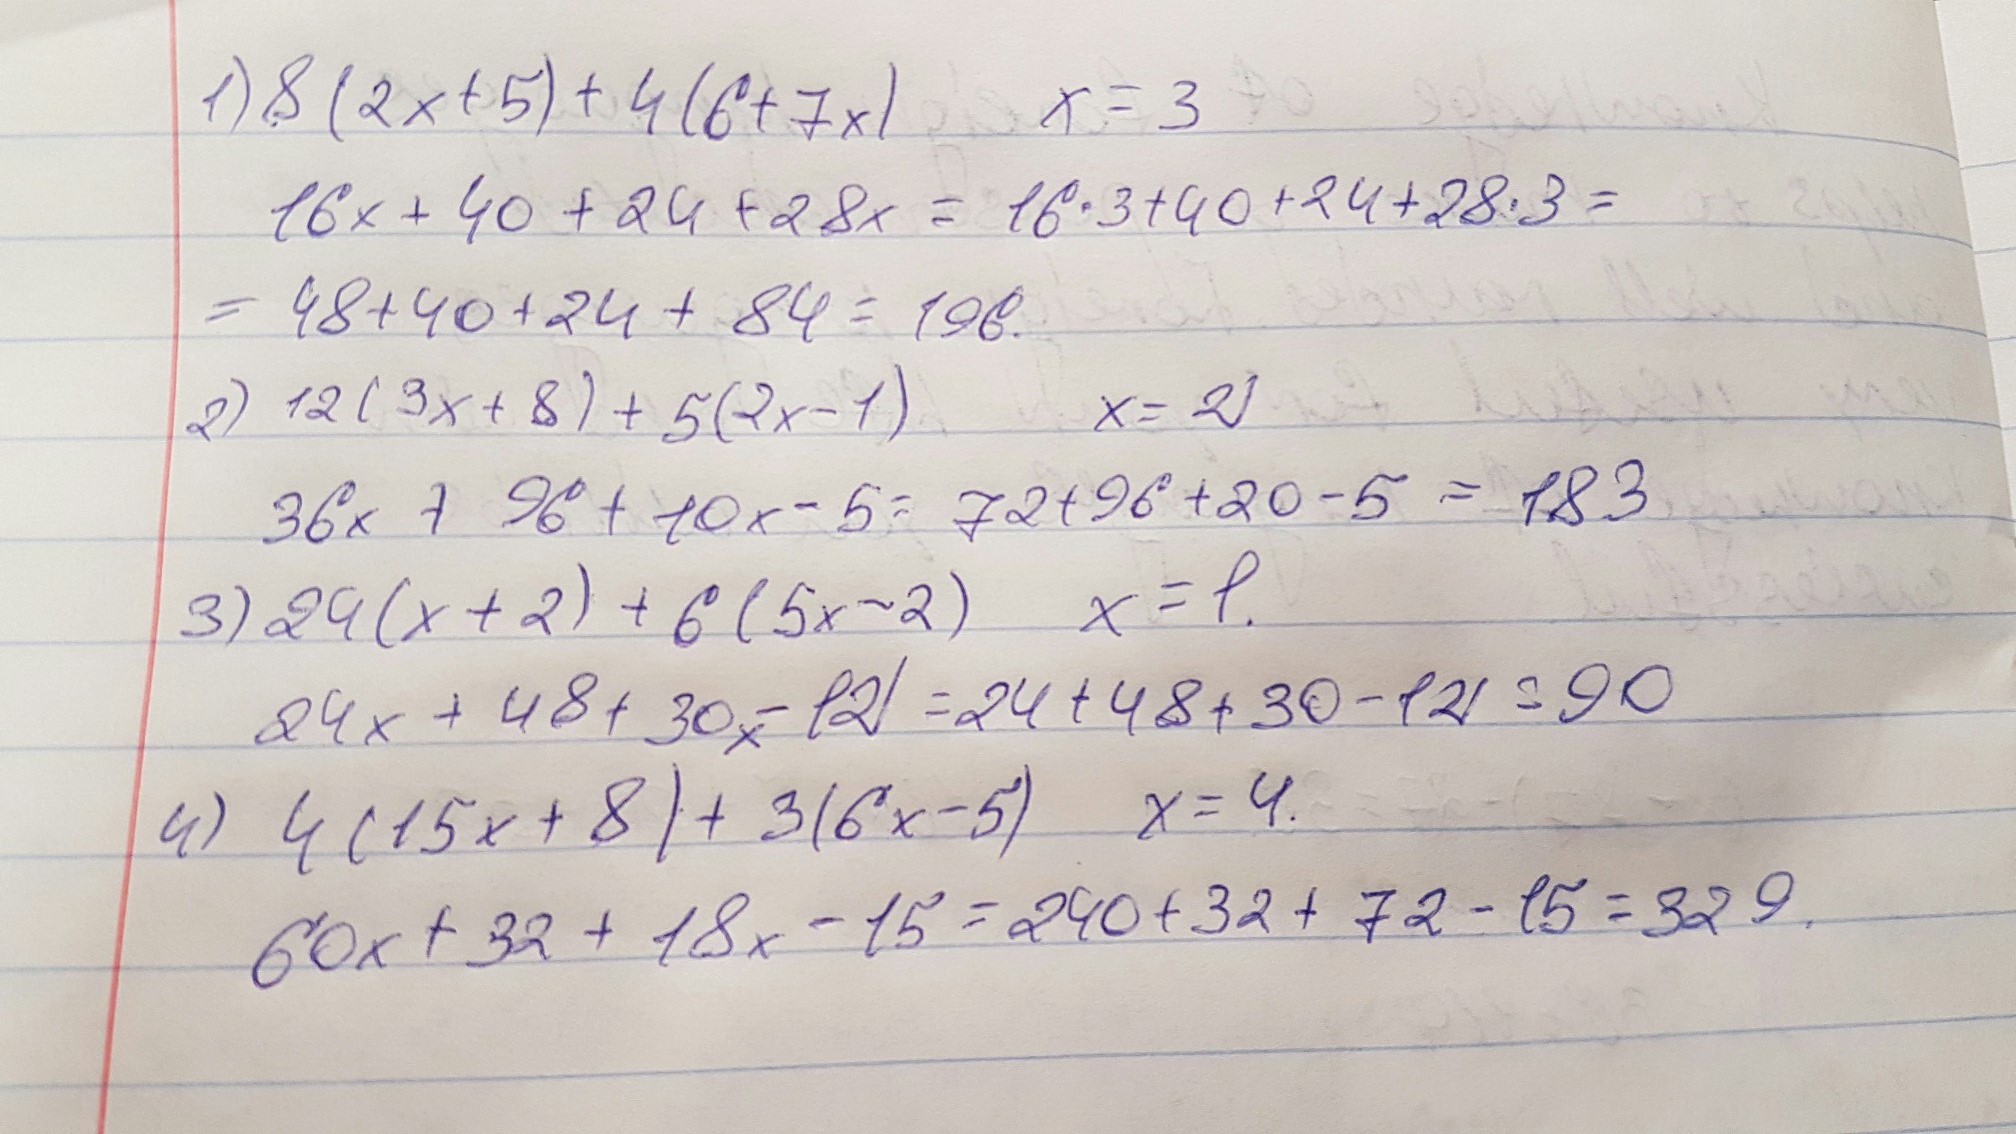 1) 8(2x+5)+4(6+7x) x=3
16x+40+24+28x=16·3+40+24+28·3=
=48+40+24+84=196.
2) 12(3x+8)+5(2x-1) x=2
36x+96+10x-5=72+96+20-5=183
3) 24(x+2)+6(5x-2) x=1.
24x+48+30x-12=24+48+30-12=90
4) 4(15x+8)+3(6x-5) x=4.
60x+32+18x-15=240+32+72-15=329.